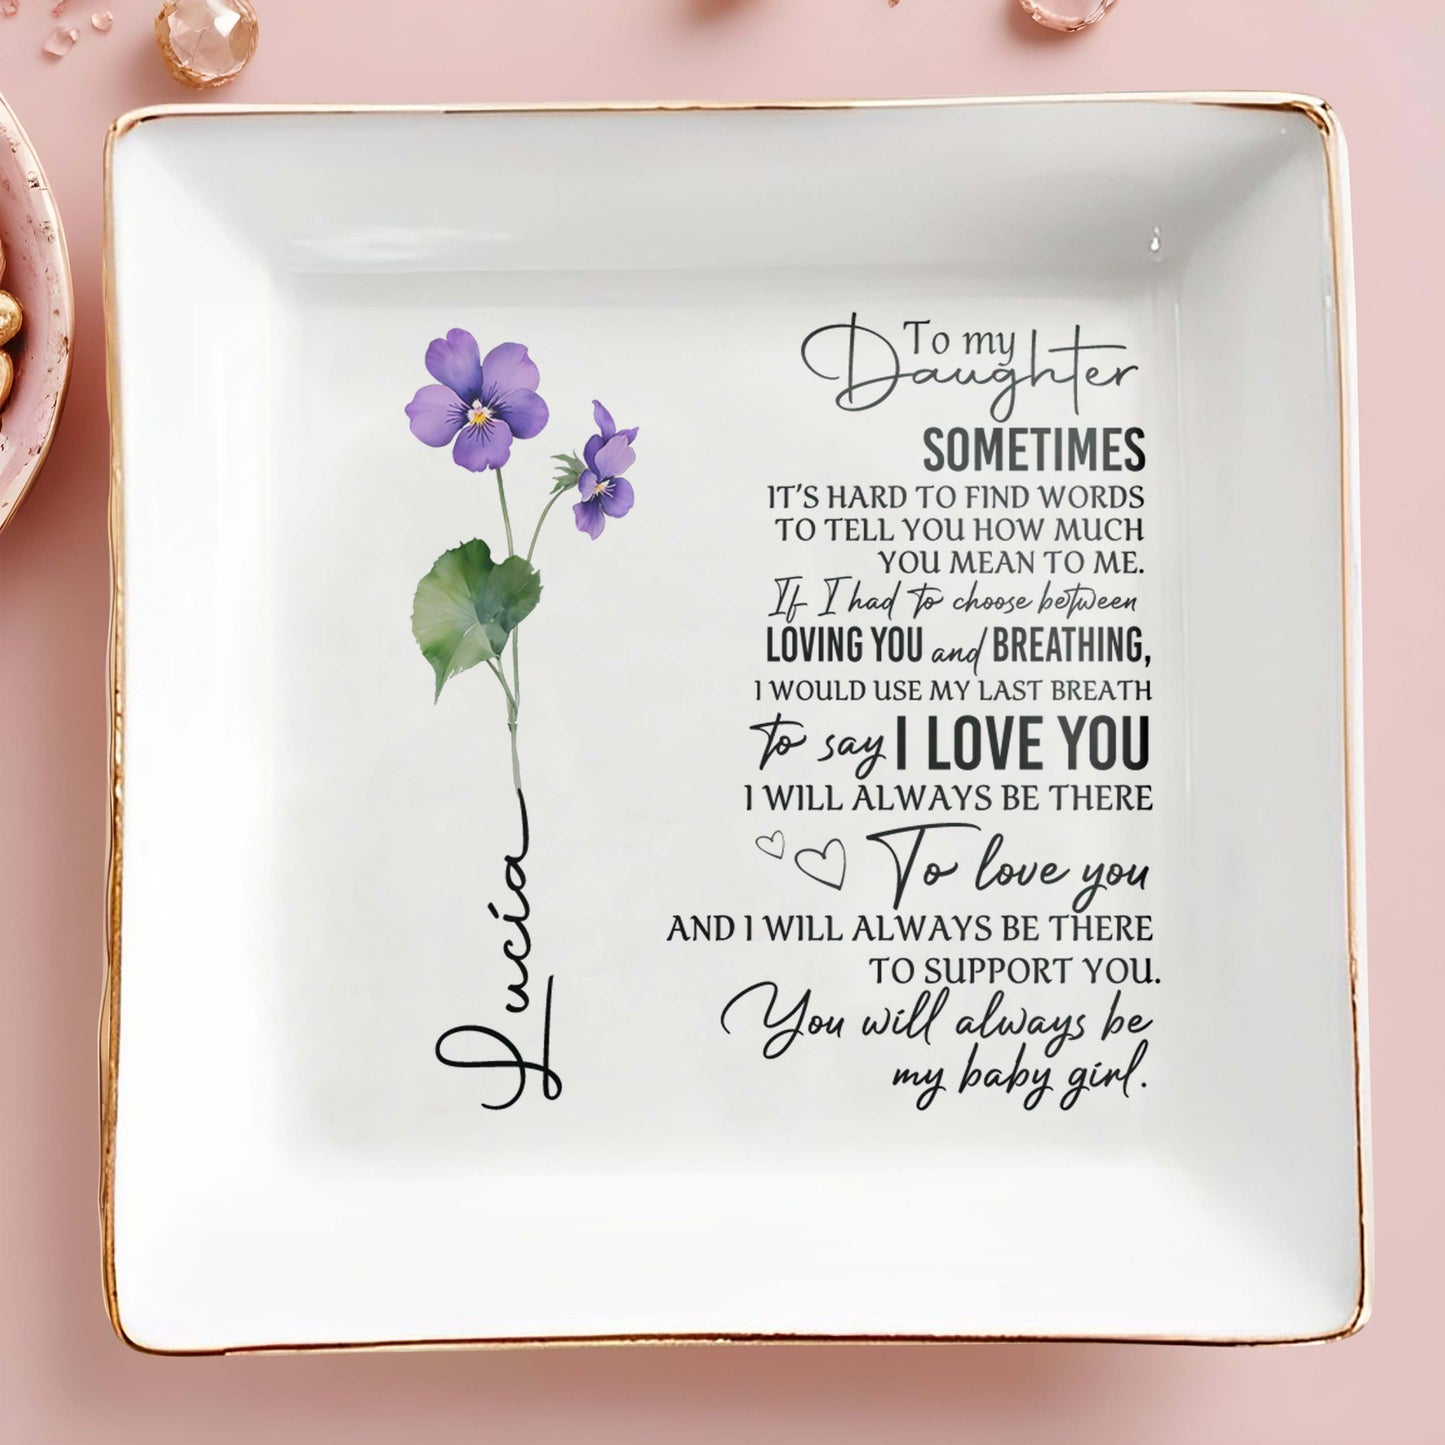 To my
Daughter
SOMETIMES
IT'S HARD TO FIND WORDS
TO TELL YOU HOW MUCH
YOU MEAN TO ME.
If I had to choose between
LOVING YOU and BREATHING,
I WOULD USE MY LAST BREATH
to say I LOVE YOU
I WILL ALWAYS BE THERE
To love you
AND I WILL ALWAYS BE THERE
TO SUPPORT YOU.
You will always be
my baby girl.
Lucía